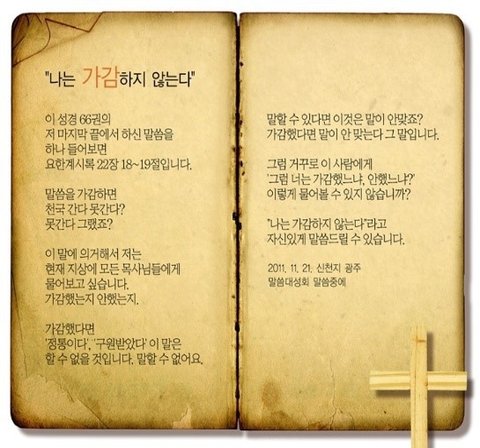 "나는 가감하지 않는다"
이 성경 66권의
저 마지막 끝에서 하신 말씀을
하나 들어보면
요한계시록 22장 18~19절입니다.
말씀을 가감하면
천국 간다 못간다?
못간다 그랬죠?
이 말에 의거해서 저는
현재 지상에 모든 목사님들에게
물어보고 싶습니다.
가감했는지 안했는지.
가감했다면
'정통이다', '구원받았다' 이 말은
할 수 없을 것입니다. 말할 수 없어요.
말할 수 있다면 이것은 말이 안맞죠?
가감했다면 말이 안 맞는다 그 말입니다.
그럼 거꾸로 이 사람에게
'그럼 너는 가감했느냐, 안했느냐?'
이렇게 물어볼 수 있지 않습니까?
"나는 가감하지 않는다"라고
자신있게 말씀드릴 수 있습니다.
2011. 11. 21. 신천지 광주
말씀대성회 말씀중에